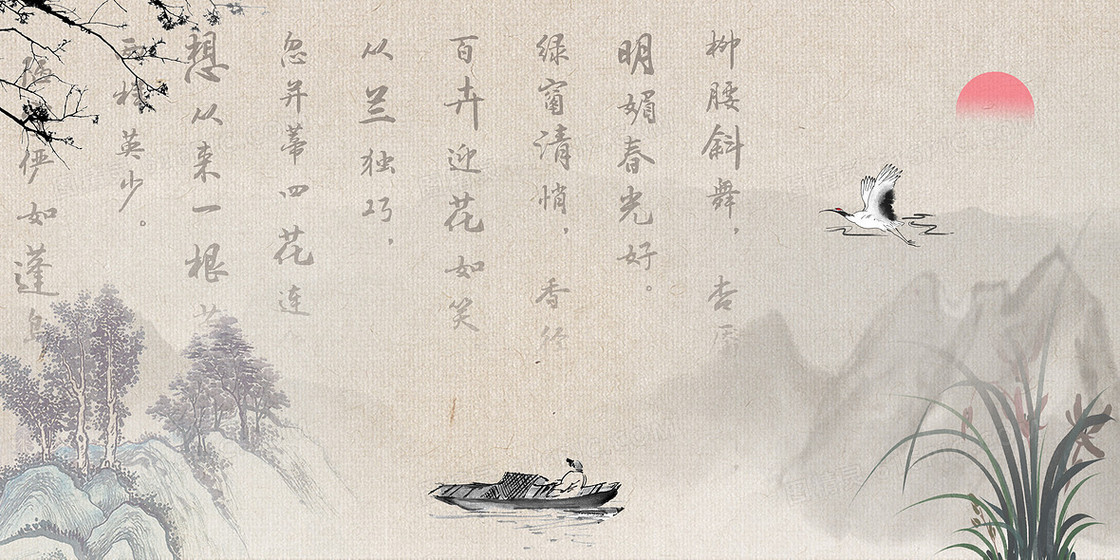 柳腰斜舞，杏
明媚春光好。
绿窗清悄，香径
百卉迎花如笑
从兰独巧，
忽并蒂四花连
想从来一根
桂英少。
伊如蓬